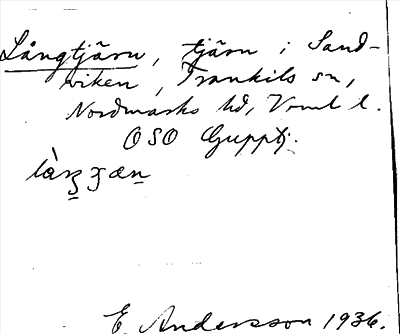 Långtjärn, tjärn i Sand-
viken, Trankils sn,
Nordmarks hd, Vrml l.
OSO Grupptj.
E. Andersson 1936.